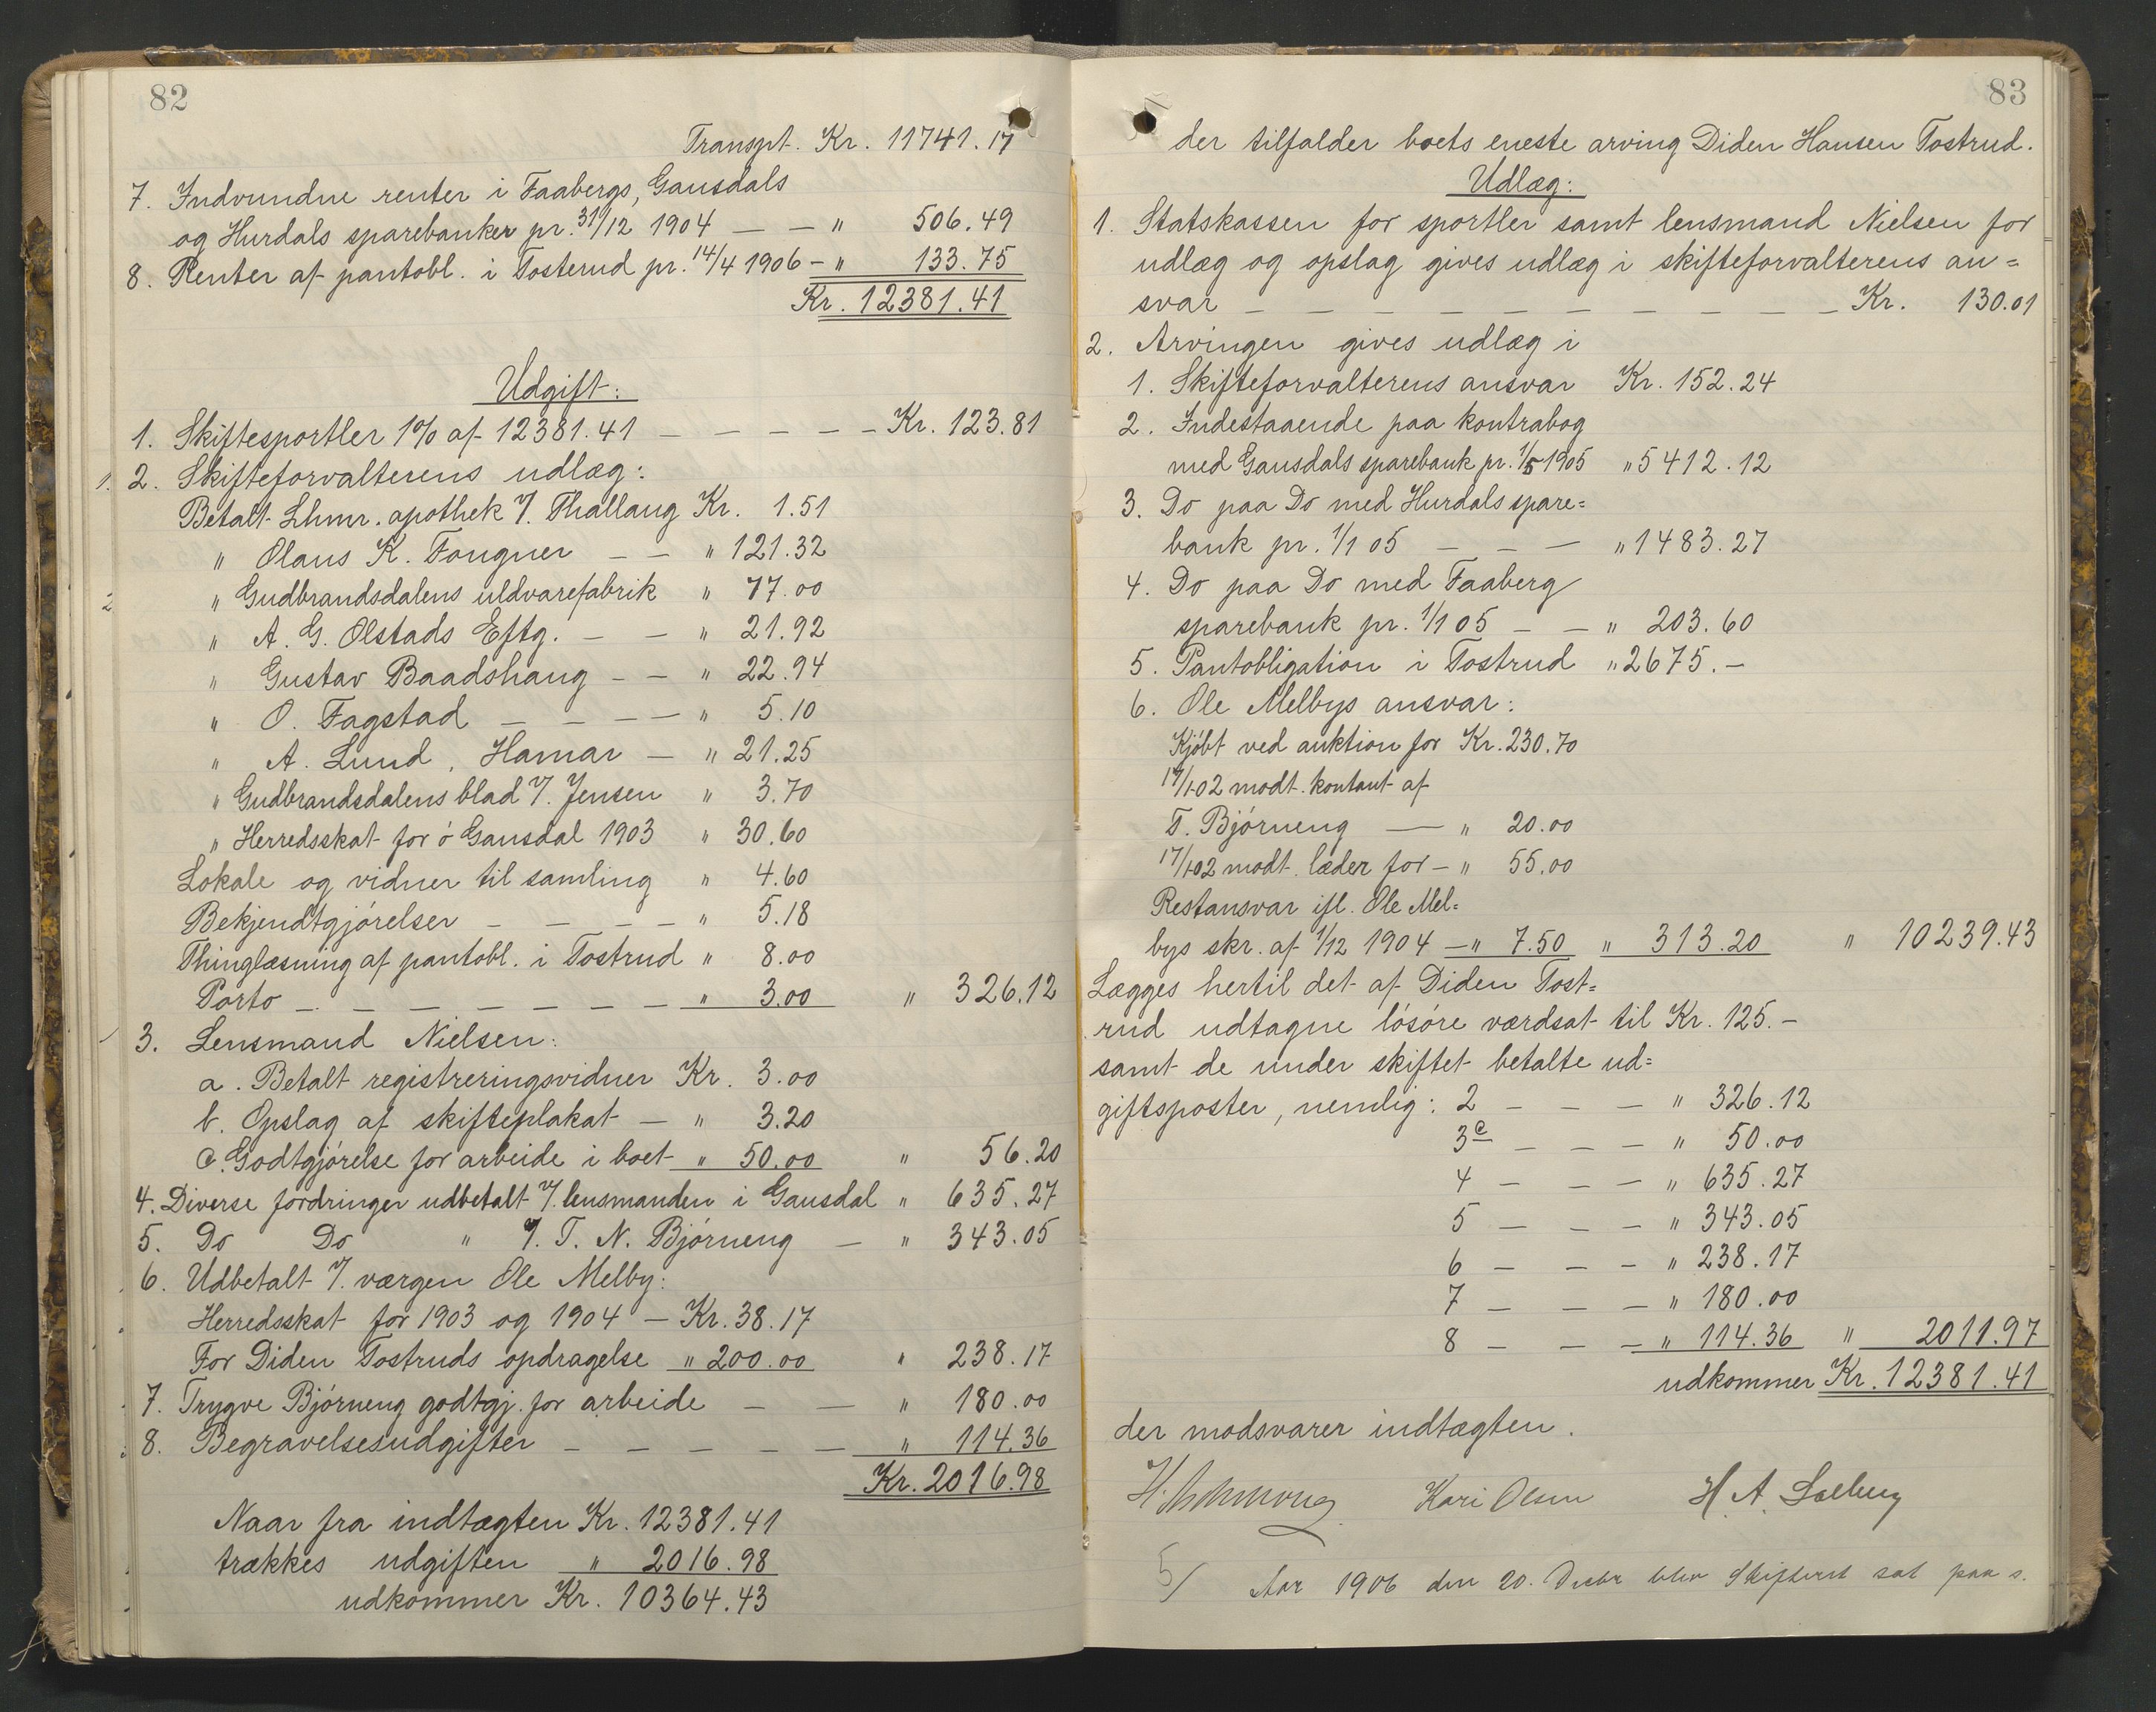 82
Transpt. Kr. 11741.17
7. Indvundne renter i Faabergs, Gausdals
og Hurdals sparebanker pr. 31/12 1904 — — " 506.49
8. Renter af pantobl. i Tosterud pr. 14/4 1906 - " 133.75
Kr. 12381.41
Udgift:
1. Skiftesportler 1% af 12381.41 — — — — — Kr. 123.81
1. 2. Skifteforvalterens udlæg:
Betalt Lhmr. apothek v/. Thallaug Kr. 1.51
" Olaus K. Fougner — — " 121.32
2 " Gudbrandsdalens uldvarefabrik " 77.00
" A. G. Olstads Eftg. — — " 21.92
" Gustav Baadshaug — — " 22.94
" O. Fagstad — — — — " 5.10
" A. Lund, Hamar — " 21.25
" Gudbrandsdalens blad v/. Jensen " 3.70
" Herredsskat for ö Gausdal 1903 " 30.60
Lokale og vidner til samling " 4.60
Bekjendtgjörelser — — — — " 5.18
Thinglæsning af pantobl. i Tostrud " 8.00
Porto — — — — — — — " 3.00 " 326.12
3. Lensmand Nielsen:
a. Betalt registreringsvidner Kr. 3.00
b. Opslag af skifteplakat — " 3.20
c. Godtgjörelse for arbeide i boet " 50.00 " 56.20
4. Diverse fordringer udbetalt v/. lensmanden i Gausdal " 635.27
5. Do Do " v/. T. N. Björneng — " 343.05
6. Udbetalt v/. værgen Ole Melby:
Herredsskat for 1903 og 1904 — Kr. 38.17
For Diden Tostruds opdragelse " 200.00 " 238.17
7. Trygve Björneng godtgj. for arbeide — — " 180.00
8. Begravelsesudgifter — — — — — " 114.36
Kr. 2016.98
Naar fra indtægten Kr. 12381.41
trækkes udgiften " 2016.98
udkommer Kr. 10364.43
83
der tilfalder boets eneste arving Diden Hansen Tostrud.
Udlæg:
1. Statskassen for sportler samt lensmand Nielsen for
udlæg og opslag gives udlæg i skifteforvalterens an=
svar — — — — — — — — — — Kr. 130.01
2. Arvingen gives udlæg i
1. Skifteforvalterens ansvar Kr. 152.24
2. Indestaaende paa kontrabog
med Gausdals sparebank pr. 1/5 1905 " 5412.12
3. Do paa Do med Hurdals spare=
bank pr. 1/1 05 — — — " 1483.27
4. Do paa Do med Faaberg
sparebank pr. 1/1 05 — — " 203.60
5. Pantobligation i Tostrud " 2675.-
6. Ole Melbys ansvar:
Kjöbt ved auktion for Kr. 230.70
17/1 02 modt. kontant af
T. Björneng — " 20.00
17/1 02 modt. læder for - " 55.00
Restansvar ifl. Ole Mel=
bys skr. af 1/12 1904 — " 7.50 " 313.20 " 10239.43
Lægges hertil det af Diden Tost=
rud udtagne lösöre værdsat til Kr. 125.-
samt de under skiftet betalte ud=
giftsposter, nemlig: 2 — — — " 326.12
3c — — — " 50.00
4 — — — " 635.27
5 — — — " 343.05
6 — — — " 238.17
7 — — — " 180.00
8 — — — " 114.36 " 2011.97
udkommer Kr. 12381.41
der modsvarer indtægten.
Kari Olsen H. A.
5/ Aar 1906 den 20. Decbr blev Skifteret sat paa s.